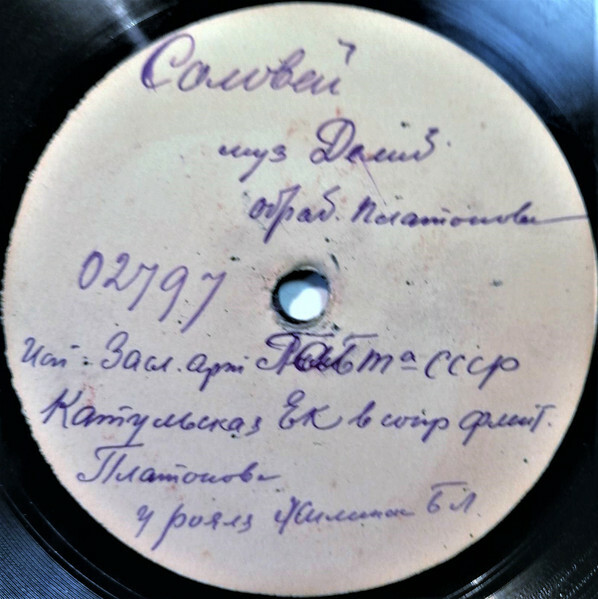 Соловей
муз Делиб
обраб. Платонова
02797
Исп: Засл. арт ГАБТ та СССР
Катульская Ек в сопр флейт.
Платонова
у рояля Б Л.